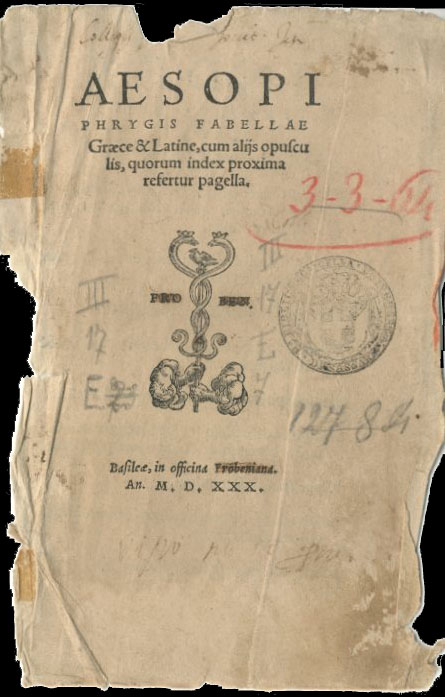 AESOPI
PHRYGIS FABELLAE
Græce & Latine, cum alijs opuscu
lis, quorum index proxima
refertur pagella.
3-3-
III
17
E
III
17
E
7
FRO BEN.
127 8
Basileæ, in officina Frobeniana.
An. M. D. XXX.